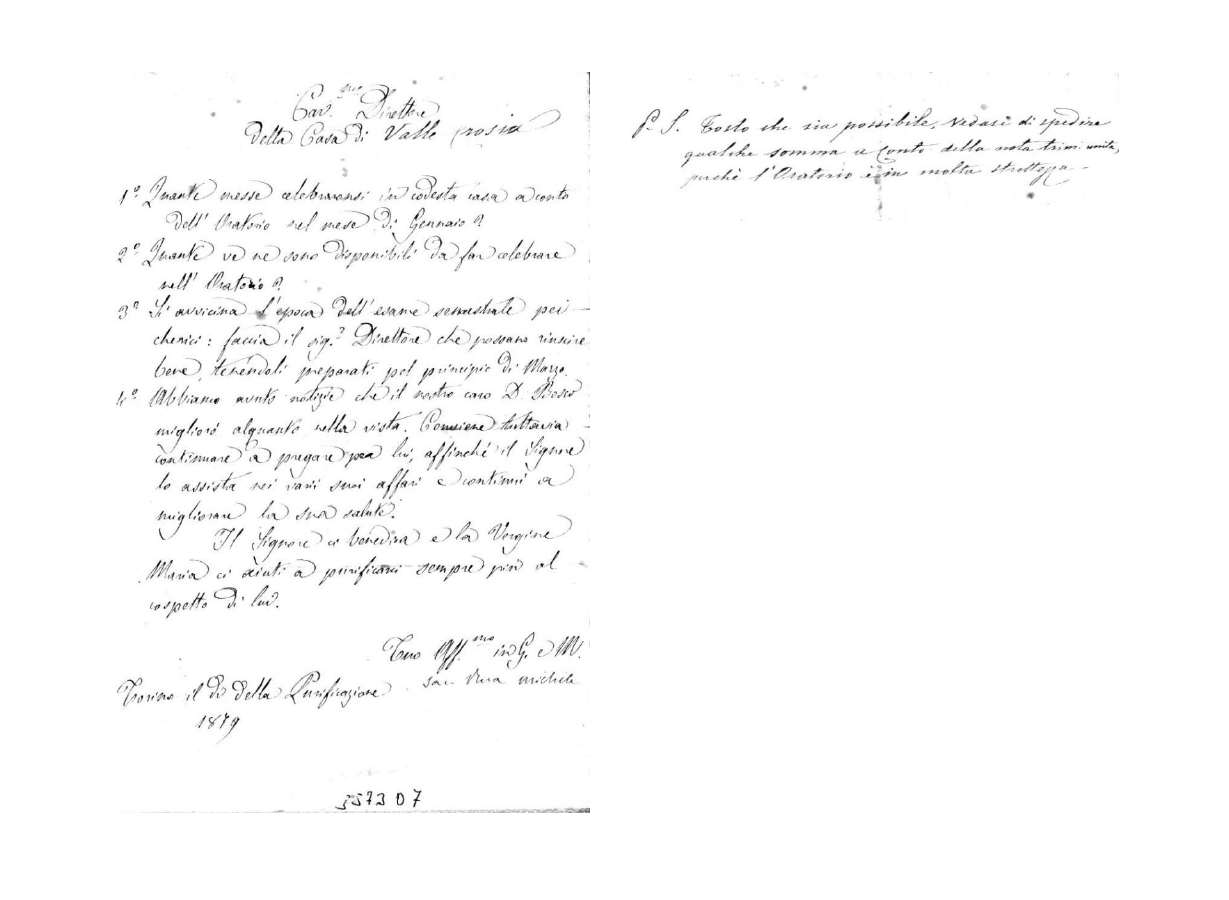 Car.mo Direttore
della Casa di Valle Crosia
1º Quante messe celebraronsi in codesta casa a conto
dell' Oratorio nel mese di Gennaio?
2º Quante ve ne sono disponibili da far celebrare
nell' Oratorio?
3º Si avvicina l'epoca dell'esame semestrale pei
cherici: faccia il sig.r Direttore che possano riuscire
bene, tenendoli preparati pel principio di Marzo.
4º Abbiamo avute notizie che il nostro caro D. Bosco
migliorò alquanto nella vista. Conviene tuttavia
continuare a pregare per lui, affinché il Signore
lo assista nei varii suoi affari e continui a
migliorare la sua salute.
Il Signore ci benedica e la Vergine
Maria ci aiuti a purificarci sempre più al
cospetto di lui.
Tuo Aff.mo in G. e M.
sac. Rua Michele
Torino il dì della Purificazione
1879
35723 D 7
P. S. Tosto che sia possibile, vedasi di spedire
qualche somma a conto della nota trasmessa,
perchè l'Oratorio è in molta strettezza.